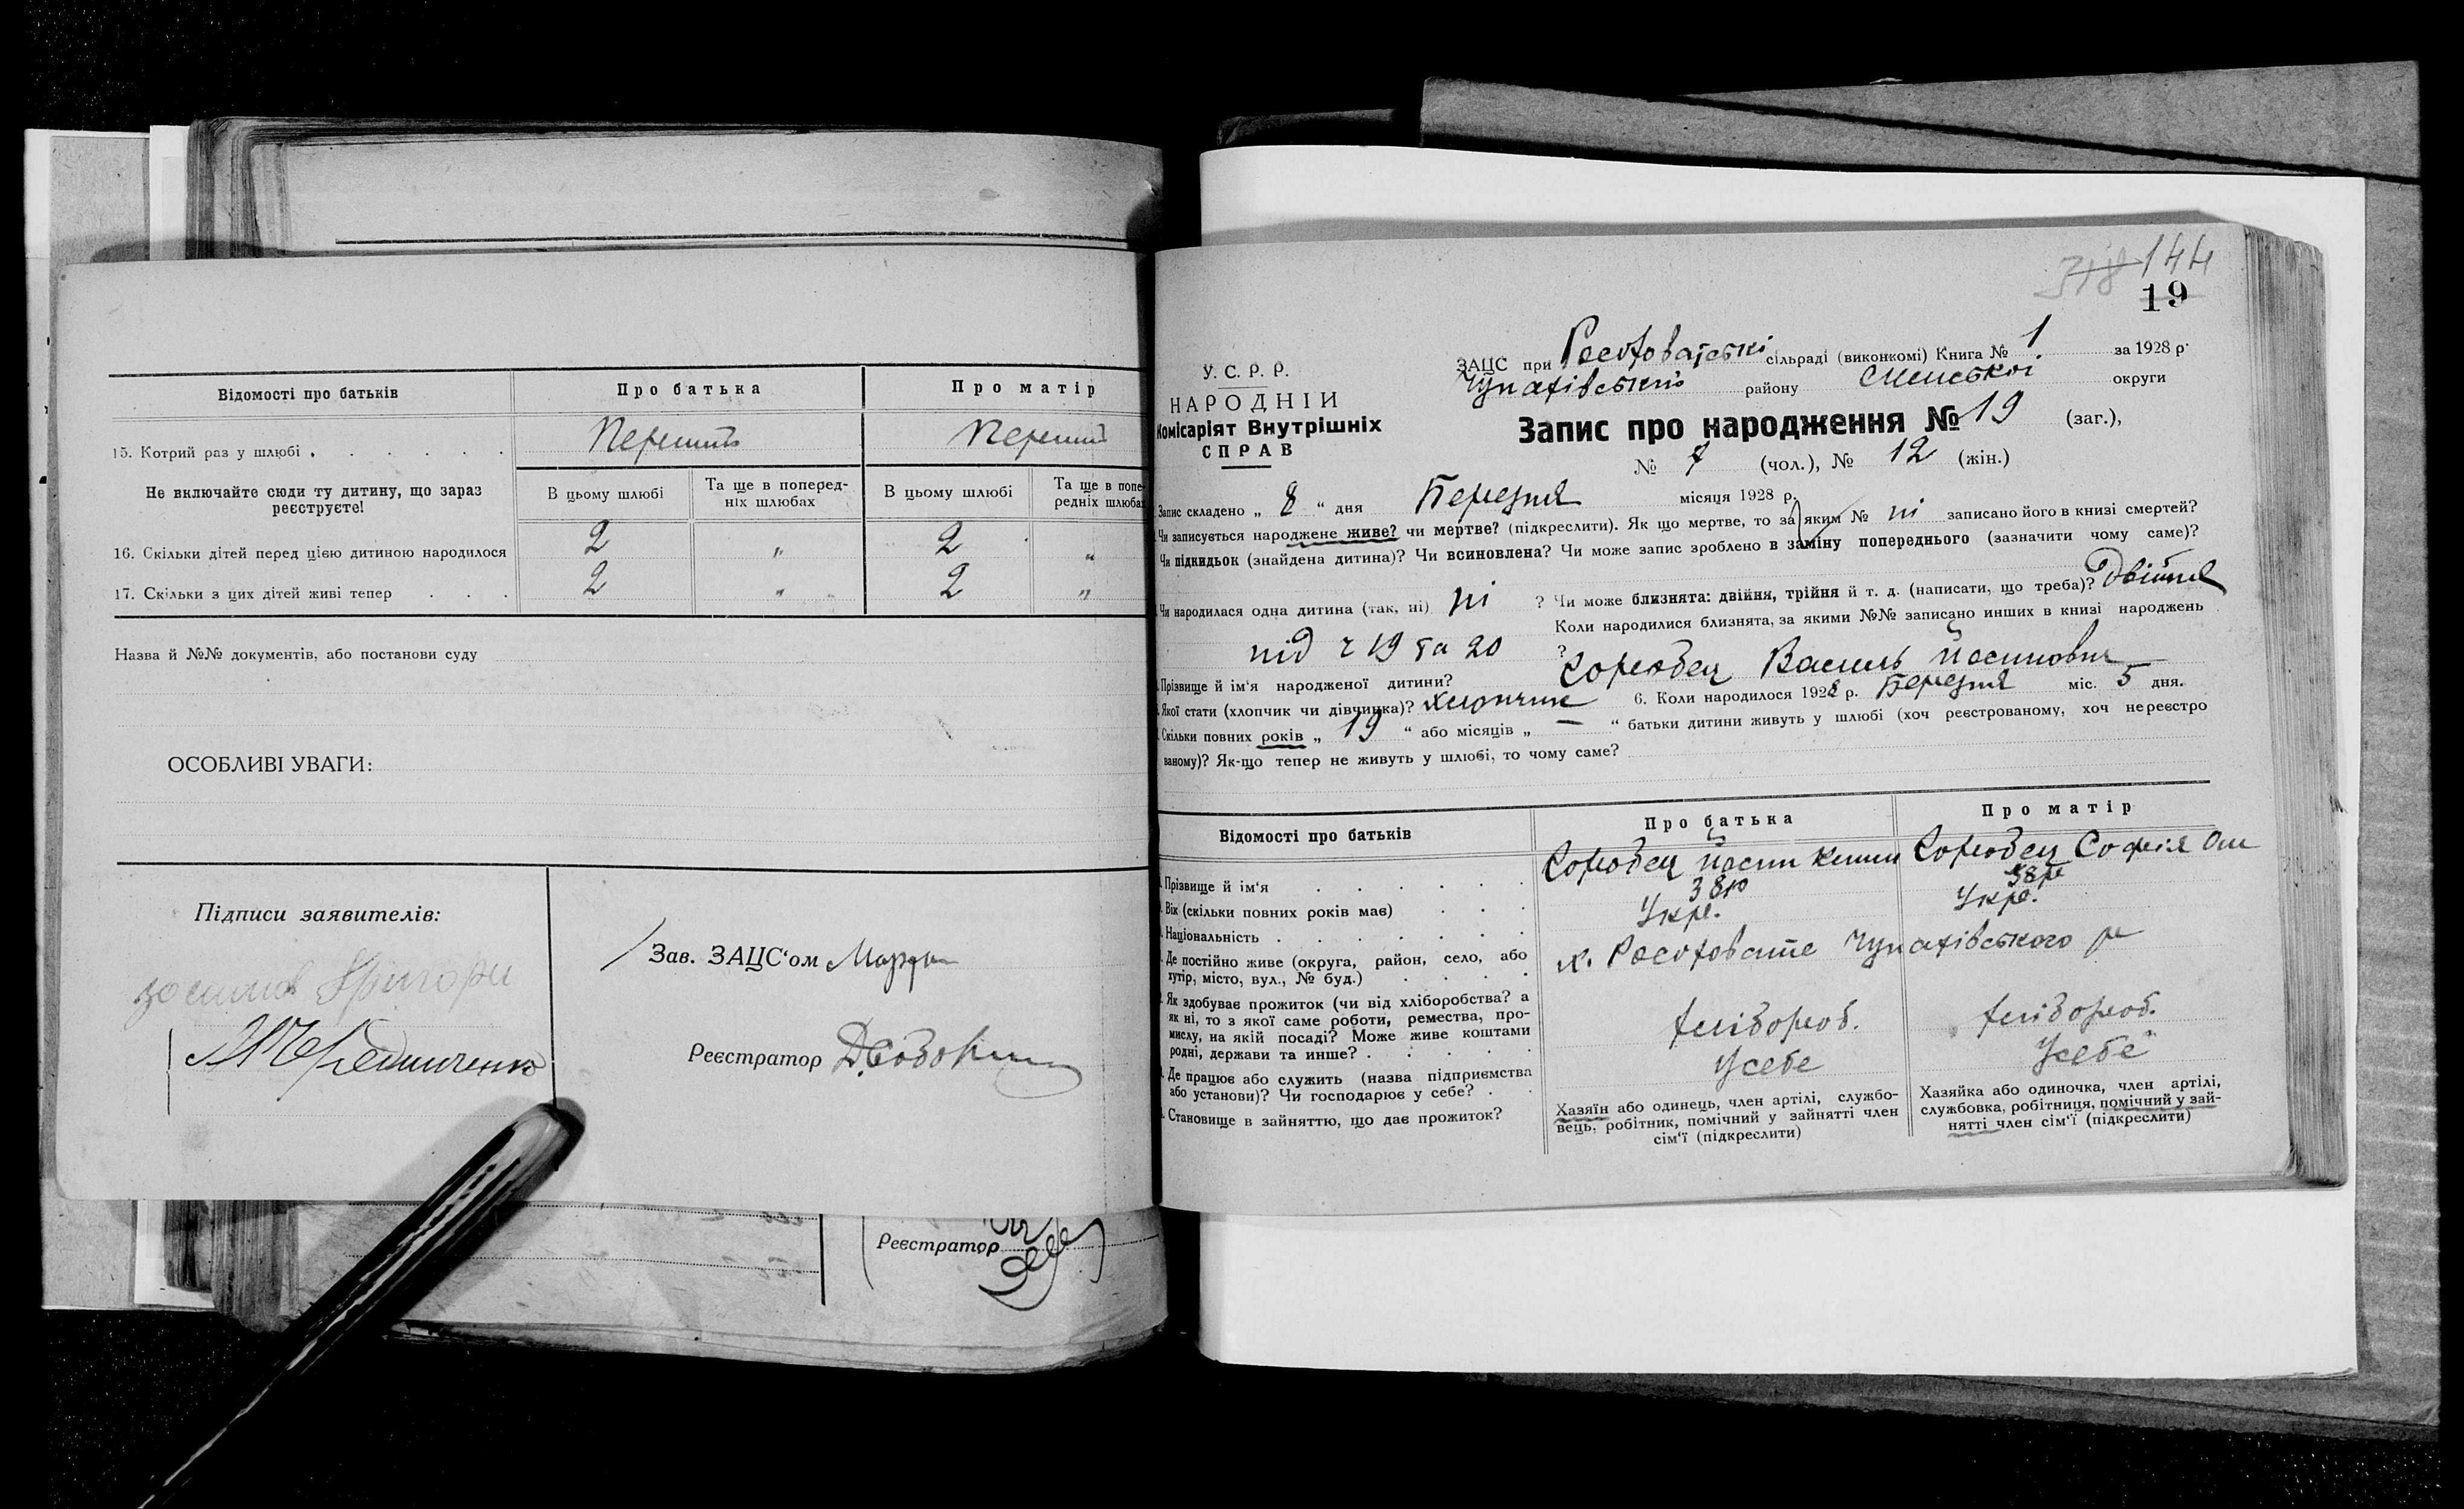 Відомості про батьків
Про батька
Про матір
15. Котрий раз у шлюбі
Перший
Перший
Не включайте сюди ту дитину, що зараз реєструєте!
В цьому шлюбі
Та ще в поперед-
ніх шлюбах
В цьому шлюбі
Та ще в попе-
редніх шлюбах
16. Скільки дітей перед цією дитиною народилося
2 " 2 "
17. Скільки з цих дітей живі тепер
2 " 2 "
Назва й №№ документів, або постанови суду
ОСОБЛИВІ УВАГИ:
Підписи заявителів:
Зав. ЗАЦС'ом
Реєстратор
Реєстратор
318 144
19
У. С. Р. Р.
НАРОДНІЙ
Комісаріят Внутрішніх
СПРАВ
ЗАЦС при сільраді (виконкомі) Книга № 1 за 1928 р.
Чупахівського району Сумської округи
Запис про народження № 19 (заг.),
№ 7 (чол.), № 12 (жін.)
Запис складено „ 8 “ дня Березня місяця 1928 р.
Чи записується народжене живе? чи мертве? (підкреслити). Як що мертве, то за яким № ні записано його в книзі смертей?
Чи підкидьок (знайдена дитина)? Чи всиновлена? Чи може запис зроблено в заміну попереднього (зазначити чому саме)?
Чи народилася одна дитина (так, ні) ні ? Чи може близнята: двійня, трійня й т. д. (написати, що треба)? Двійня
Коли народилися близнята, за якими №№ записано инших в книзі народжень
під ч 19 та 20 ?
Прізвище й ім'я народженої дитини? Василь
Якої стати (хлопчик чи дівчинка)? хлопчик 6. Коли народилося 1928 р. Березня міс. 5 дня.
Скільки повних років „ 19 “ або місяців „ — “ батьки дитини живуть у шлюбі (хоч реєстрованому, хоч нереєстро
ваному)? Як-що тепер не живуть у шлюбі, то чому саме?
Відомості про батьків
Про батька
Про матір
Прізвище й ім'я
Софія
Вік (скільки повних років має)
38р
38р
Національність
Укр.
Укр.
Де постійно живе (округа, район, село, або
хутір, місто, вул., № буд.)
х. Чупахівського р
Як здобуває прожиток (чи від хліборобства? а
як ні, то з якої саме роботи, ремества, про-
мислу, на якій посаді? Може живе коштами
родні, держави та инше?
хлібороб.
хлібороб.
Де працює або служить (назва підприємства
або установи)? Чи господарює у себе?
Усебе
Усебе
Становище в зайняттю, що дає прожиток?
Хазяїн або одинець, член артілі, службо-
вець, робітник, помічний у зайнятті член
сім'ї (підкреслити)
Хазяйка або одиночка, член артілі,
службовка, робітниця, помічний у зай-
нятті член сім'ї (підкреслити)